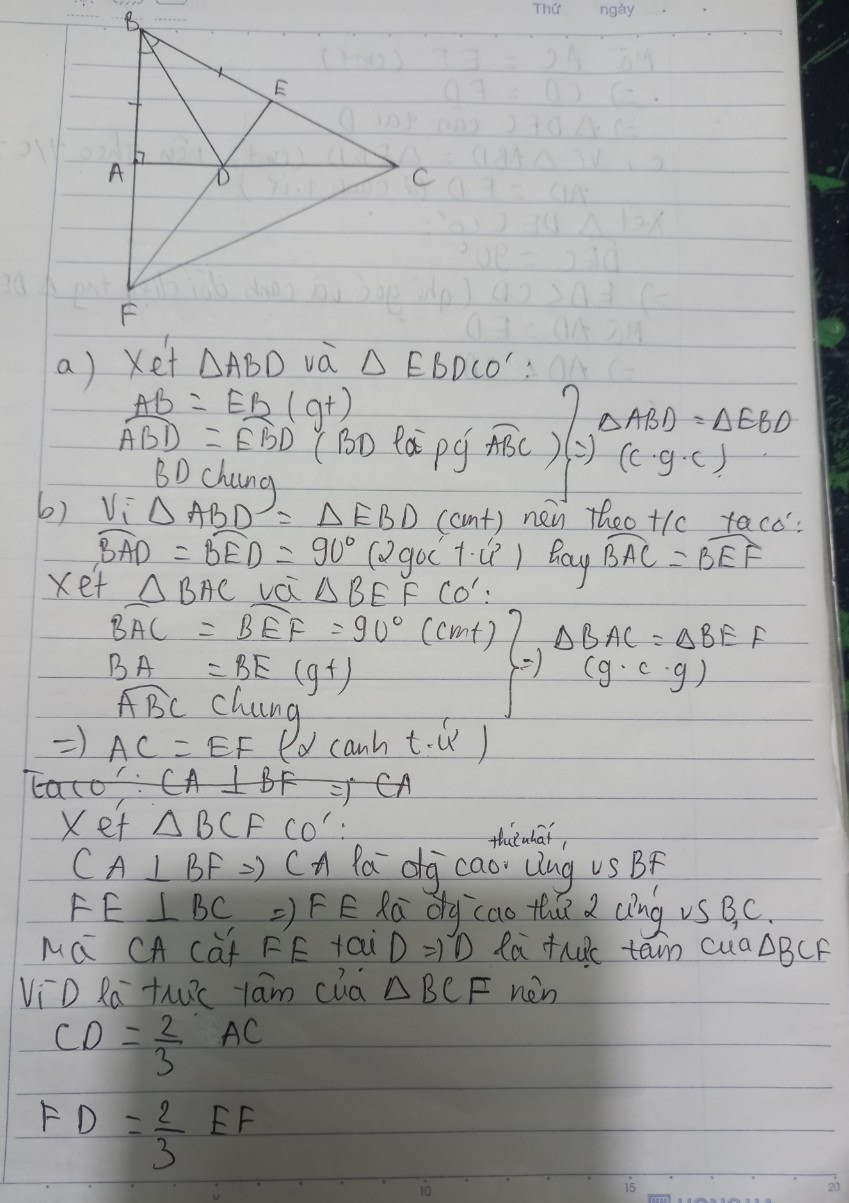 Thứ ngày
B
E
A
D
C
F
a) Xét ΔABD và Δ EBD có:
AB = EB (gt)
ABD = EBD (BD là pg ABC) => ΔABD = ΔEBD
BD chung (c.g.c)
b) Vì Δ ABD = Δ EBD (cmt) nên theo t/c ta có:
BAD = BED = 90° (2 góc t.ứ) hay BAC = BEF
Xét Δ BAC và Δ BEF có:
BAC = BEF = 90° (cmt) ΔBAC = ΔBEF
BA = BE (gt) => (g.c.g)
ABC chung
=) AC = EF (2 cạnh t.ứ)
Ta có: CA ⊥ BF => CA
Xét ΔBCF có:
CA ⊥ BF => CA là đg cao thứ nhất, ứng vs BF
FE ⊥ BC => FE là đg cao thứ 2 ứng vs BC.
Mà CA cắt FE tại D => D là trực tâm của ΔBCF
Vì D là trực tâm của ΔBCF nên
CD = 2/3 AC
FD = 2/3 EF
10
15
20